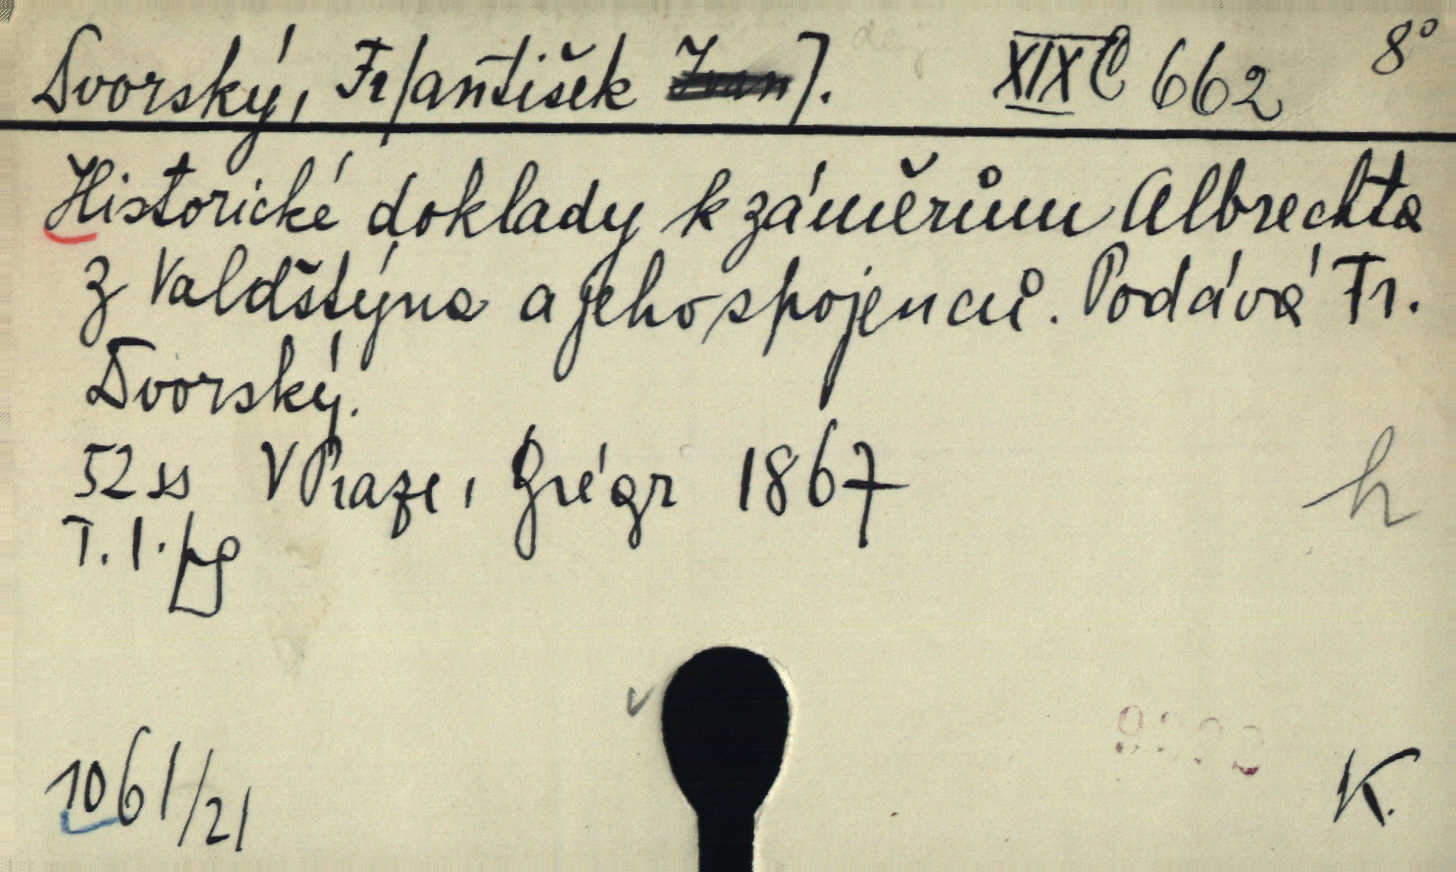 Dvorský, Fr/antišek ]. XIX C 662 8°
Historické doklady k záměrům Albrechta
z Valdštýna a jeho spojenců. Podává Fr.
Dvorský.
52 ss V Praze, Grégr 1867
T. I.
h
1061/21
K.